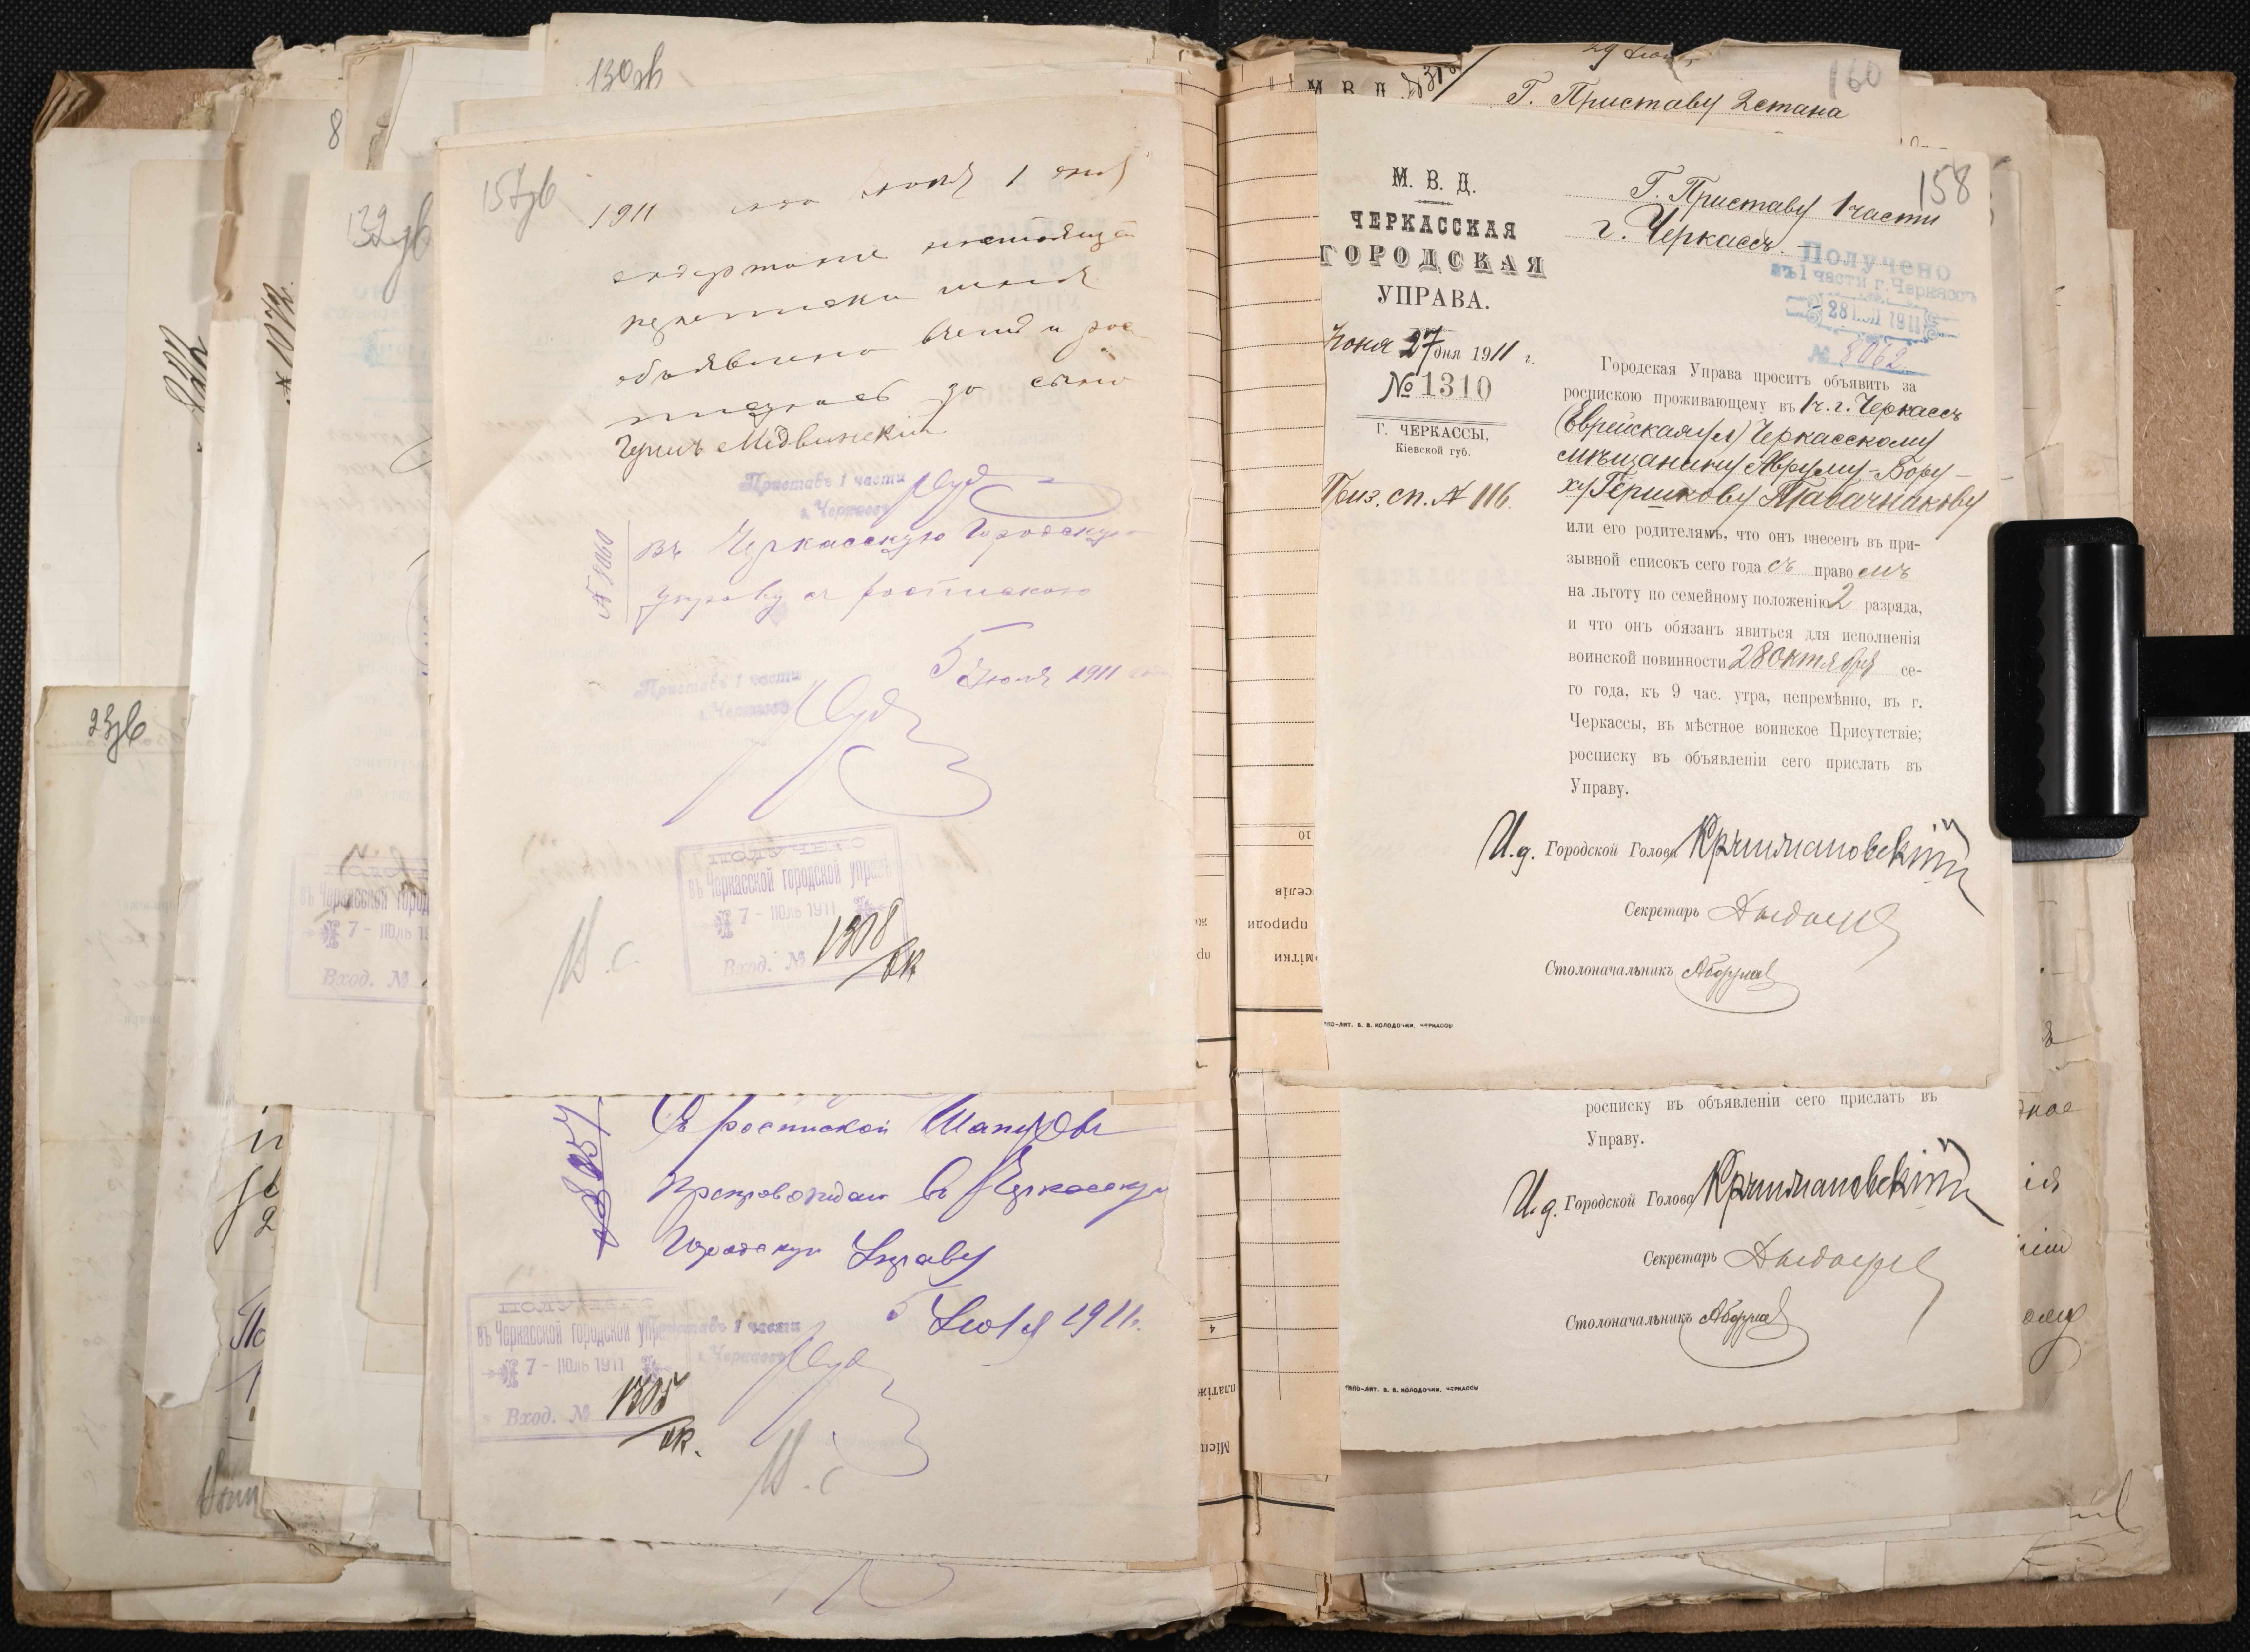 130зв
8
132зв
23зв
157зв
1911 года июля 1 дня
содержание настоящей
переписки мне
объявлено в чем и рос
писуюсь за сына
Герш Медвинский
Приставъ 1 части
г. Черкассъ
№ 8060
Въ Черкасскую Городскую
Управу съ роспискою
5 Июля 1911 года
Приставъ 1 части
г. Черкассъ
ПОЛУЧЕНО
въ Черкасской городской управѣ
7 - ІЮЛЬ 1911
Вход. № 1308
вк
Н.С.
ПОЛУЧ
въ Черкасской город
7 - ІЮЛЬ 19
Вход. №
Съ роспиской
Препровождаю въ Черкасскую
Городскую Управу
5 Июля 1911.
ПОЛУЧЕНО
въ Черкасской городской упра
7 - ІЮЛЬ 1911
Вход. № 1305
вк.
Приставъ 1 части
г. Черкассъ
Н.С
160
М В Д
Г. Приставу 2 стана
158
М. В. Д.
ЧЕРКАССКАЯ
ГОРОДСКАЯ
УПРАВА.
Июня 27 дня 1911 г.
№ 1310
Г. ЧЕРКАССЫ,
Кіевской губ.
Приз. сп. № 116.
Г. Приставу 1 части
г. Черкассъ.
Получено
въ 1 части г. Черкассъ
28 1911
№ 8062
Городская Управа проситъ объявить за
роспискою проживающему въ 1 ч. г. Черкассъ
(Еврейская ул) Черкасскому
мѣщанину Авруму-Бору-
ху Гершкову Табачникову
или его родителямъ, что онъ внесенъ въ при-
зывной списокъ сего года съ право мъ
на льготу по семейному положенію 2 разряда,
и что онъ обязанъ явиться для исполненія
воинской повинности 28 октября се-
го года, къ 9 час. утра, непремѣнно, въ г.
Черкассы, въ мѣстное воинское Присутствіе;
росписку въ объявленіи сего прислать въ
Управу.
И.д. Городской Голова
Секретарь
Столоначальникъ
ТИПО-ЛИТ. В. В. КОЛОДОЧКИ, ЧЕРКАССЫ
росписку въ объявленіи сего прислать въ
Управу.
И.д. Городской Голова
Секретарь
Столоначальникъ
ТИПО-ЛИТ. В. В. КОЛОДОЧКИ, ЧЕРКАССЫ